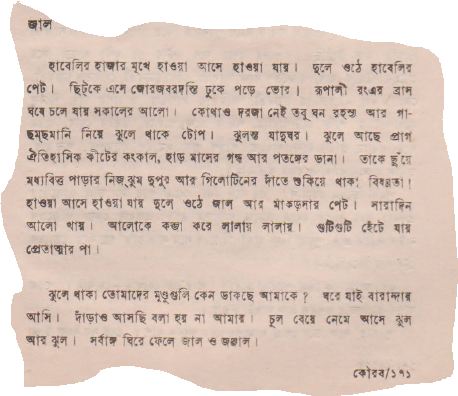 জাল
হাবেলির হাজার মুখে হাওয়া আসে হাওয়া যায়। ছুলে ওঠে হাবেলির
পেট। ছিট্‌কে এসে জোরজবরদস্তি ঢুকে পড়ে ভোর। রূপালী রংএর ব্রাস
ঘষে চলে যায় সকালের আলো। কোথাও দরজা নেই তবু ঘন রহস্য আর গা-
ছম্‌ছমানি নিয়ে ঝুলে থাকে টোপ। ঝুলন্ত যাদুঘর। ঝুলে আছে প্রাগ
ঐতিহাসিক কীটের কংকাল, হাড় মাসের গন্ধ আর পতঙ্গের ডানা। তাকে ছুঁয়ে
মধ্যবিত্ত পাড়ার নিজ্‌ঝুম দুপুর আর গিলোটিনের দাঁতে শুকিয়ে থাকা বিষণ্ণতা।
হাওয়া আসে হাওয়া যায় দুলে ওঠে জাল আর মাকড়সার পেট। সারাদিন
আলো খায়। আলোকে কব্জা করে লালায় লালায়। গুটিগুটি হেঁটে যায়
প্রেতাত্মার পা।
ঝুলে থাকা তোমাদের মুণ্ডুগুলি কেন ডাকছে আমাকে? ঘরে যাই বারান্দায়
আসি। দাঁড়াও আসছি বলা হয় না আমার। চুল বেয়ে নেমে আসে ঝুল
আর ঝুল। সর্বাঙ্গ ঘিরে ফেলে জাল ও জঞ্জাল।
কৌরব/১৭১